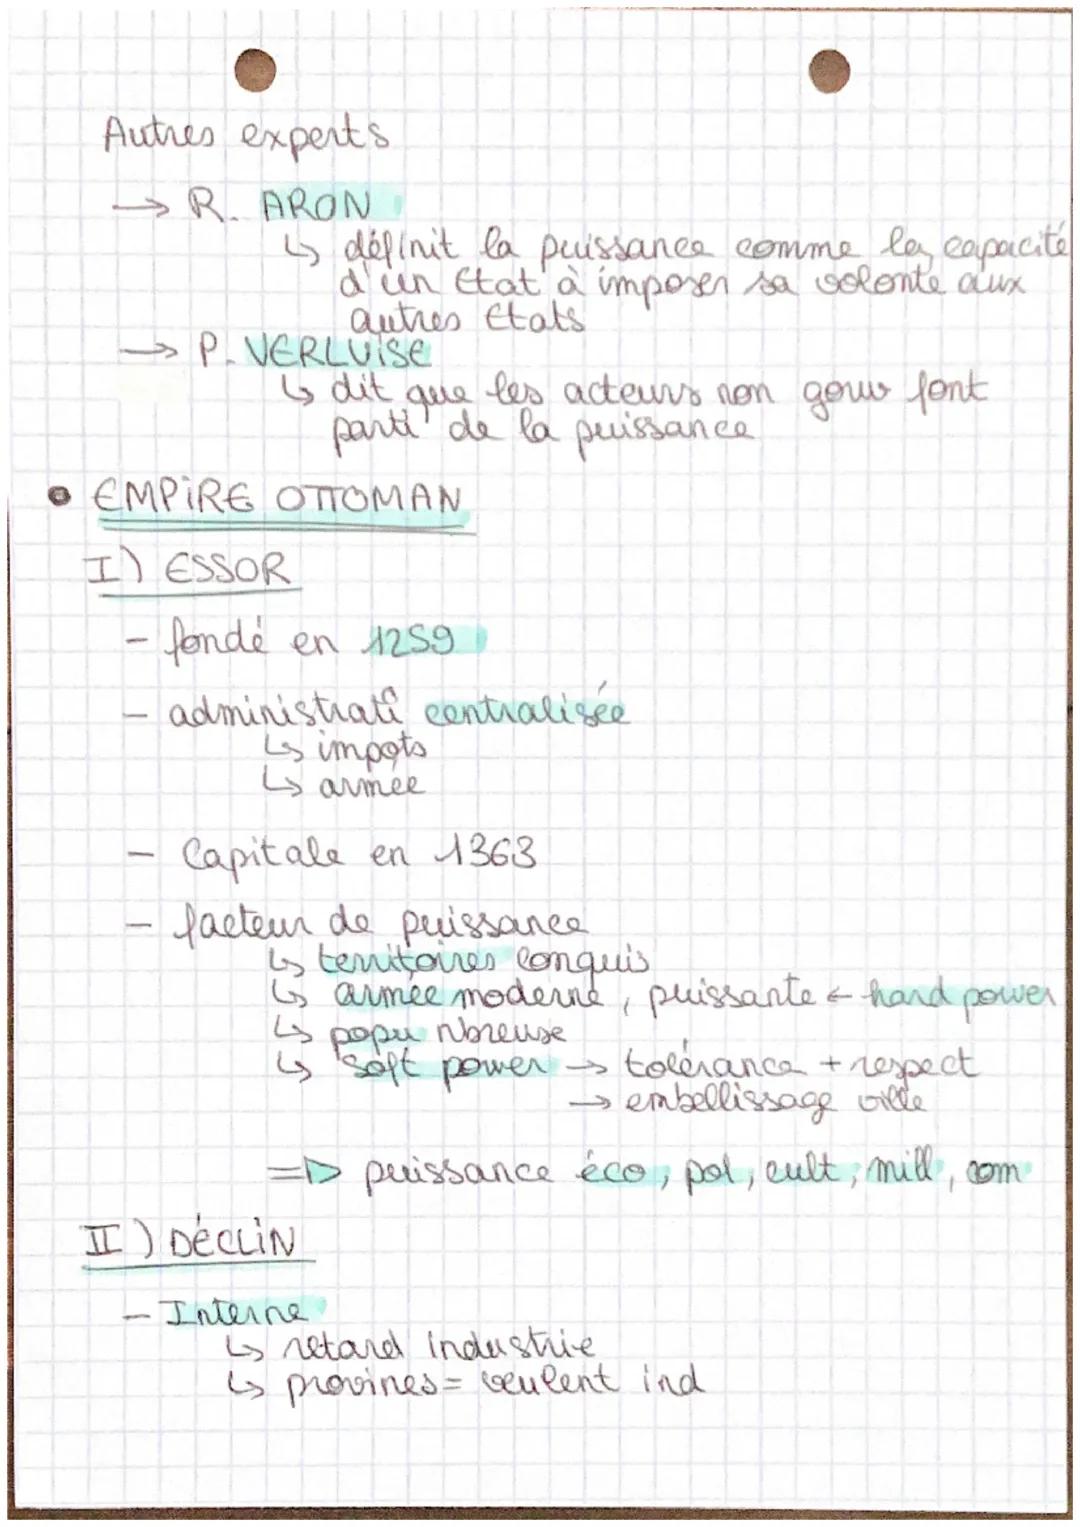 Autres experts
→ R. ARON
↳ définit la puissance comme la capacité
d'un Etat à imposer sa volonté aux
autres Etats
→ P. VERLUISE
↳ dit que les acteurs non gouv font
parti de la puissance
• EMPIRE OTTOMAN
I) ESSOR
- fondé en 1259
- administrati° centralisée
↳ impots
↳ armée
- Capitale en 1363
- facteur de puissance
↳ territoires conquis
↳ armée moderne, puissante ← hard power
↳ popu nbreuse
↳ soft power → tolérance + respect
→ embellissage ville
=▷ puissance éco, pol, cult, mill, com
II) DÉCLIN
- Interne
↳ retard industrie
↳ provines = veulent ind